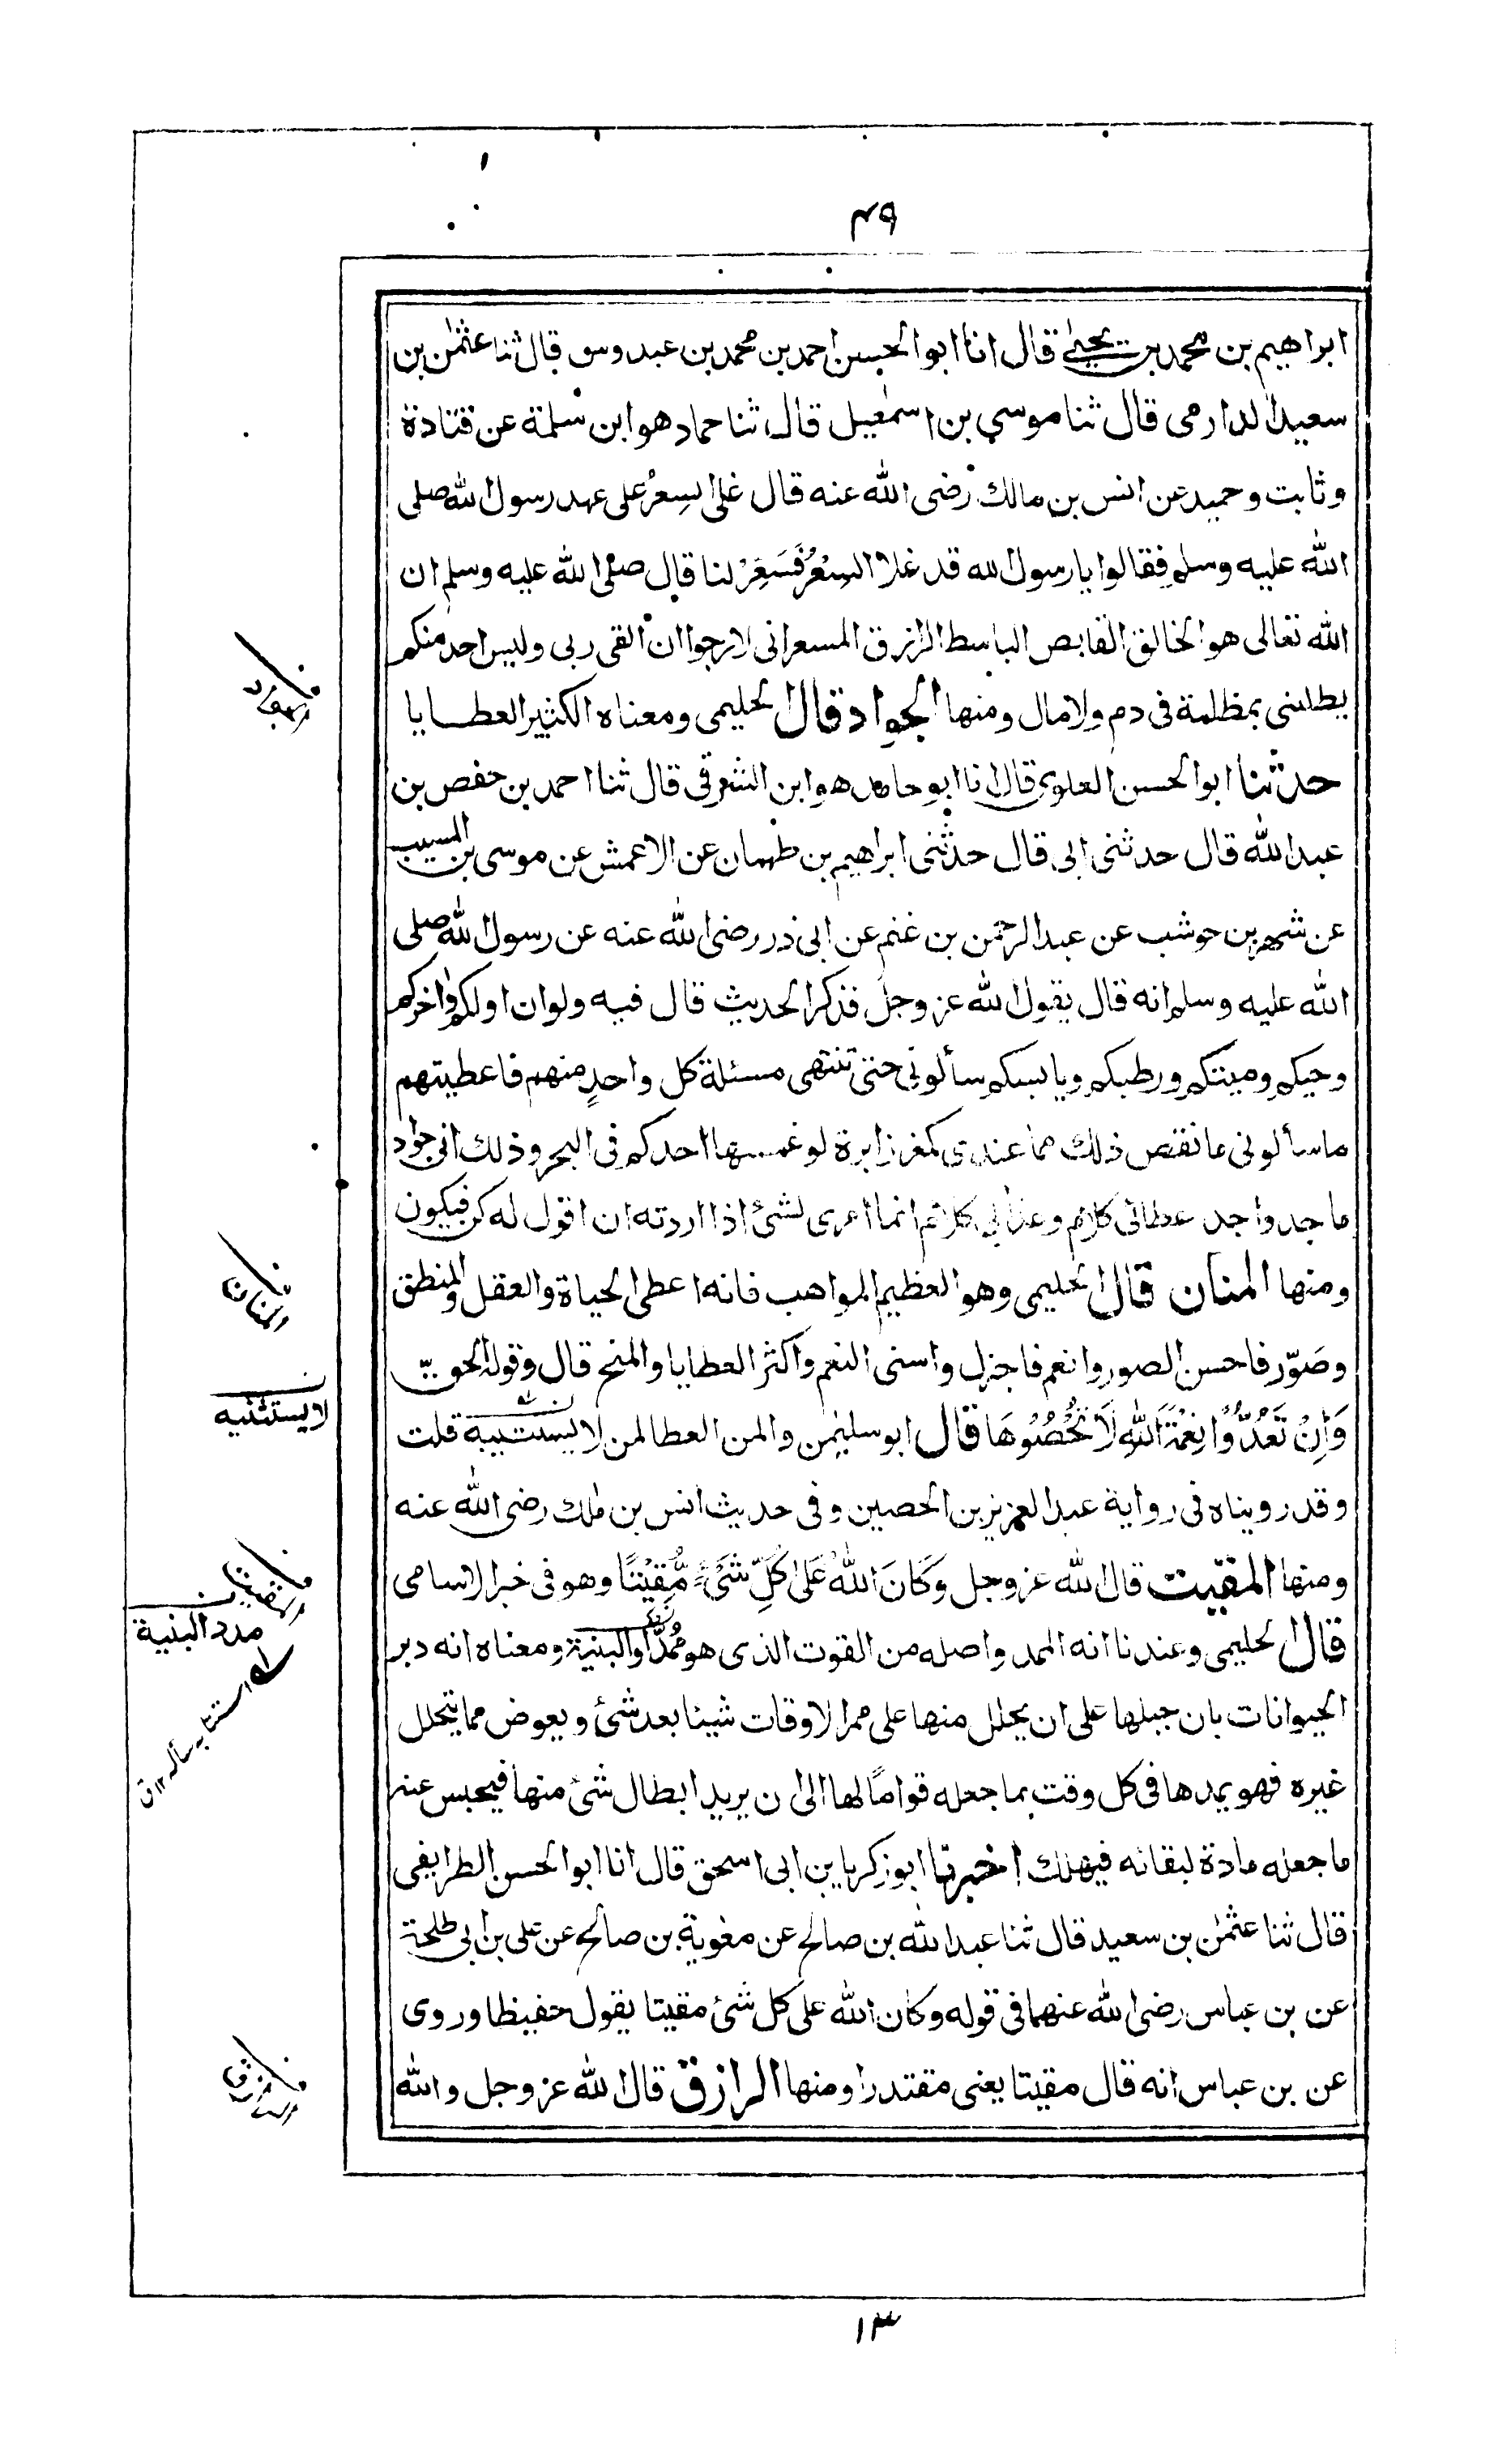 ٤٩
ابراهيم بن محمد بن يحيى قال انا ابو الحسن احمد بن محمد بن عبدوس قال ثنا عثمٰن بن
سعيد الدارمى قال ثنا موسى بن اسمٰعيل قال ثنا حماد هو ابن سلمة عن قتادة
وثابت وحميد عن انس بن مالك رضى الله عنه قال غلى السِعْرُ على عهد رسول الله صلى
الله عليه وسلم فقالوا يا رسول الله قد غلا السِعْرُ فَسَعِّرْ لنا قال صلى الله عليه وسلم ان
الله تعالى هو الخالق القابض الباسط الرازق المسعر انى لارجوا ان القى ربى وليس احد منكم
يطلبنى بمظلمة فى دم ولا مال ومنها الجواد قال الحليمى ومعناه الكثير العطايا
حدثنا ابو الحسن العلوى قال انا ابو حامد هو ابن الشرقى قال ثنا احمد بن حفص بن
عبد الله قال حدثنى ابى قال حدثنى ابراهيم بن طهمان عن الاعمش عن موسى بن المسيب
عن شهر بن حوشب عن عبد الرحمن بن غنم عن ابى ذر رضى الله عنه عن رسول الله صلى
الله عليه وسلم انه قال يقول الله عز وجل فذكر الحديث قال فيه ولو ان اولكم واخركم
وحيكم وميتكم ورطبكم ويابسكم سألونى حتى تنتهى مسئلة كل واحدٍ منهم فاعطيتهم
ما سألونى ما نقص ذلك مما عندى كمغرز ابرة لو غمسها احدكم فى البحر وذلك انى جواد
ماجد واجد عطائى كلام وعذابى كلام انما امرى لشئ اذا اردته ان اقول له كن فيكون
ومنها المنان قال الحليمى وهو العظيم المواهب فانه اعطى الحياة والعقل والمنطق
وصَوّر فاحسن الصور وانعم فاجزل واسنى النعم واكثر العطايا والمنح قال وقوله الحق
وَاِنْ تَعُدُّوْا نِعْمَةَ اللهِ لَا تُحْصُوْهَا قال ابو سليمٰن والمن العطا لمن لا يستثيبه قلت
وقد رويناه فى رواية عبد العزيز بن الحصين وفى حديث انس بن مٰلك رضى الله عنه
ومنها المقيت قال الله عز وجل وَكَانَ اللهُ عَلٰى كُلِّ شَئٍْ مُّقِيْتًا وهو فى خبر الاسامى
قال الحليمى وعندنا انه الممد واصله من القوت الذى هو مُمِدًّا والبنية ومعناه انه دبر
الحيوانات بان جبلها على ان يحلل منها على ممر الاوقات شيئا بعد شئ ويعوض مما يتحلل
غيره فهو يمدها فى كل وقت بما جعله قوامًا لها الى ان يريد ابطال شئ منها فيحبس عنه
ما جعله مادة لبقائه فيهلك اخبرنا ابو زكريا بن ابى اسحق قال انا ابو الحسن الطرايفى
قال ثنا عثمٰن بن سعيد قال ثنا عبد الله بن صالح عن معٰوية بن صالح عن على بن ابى طلحة
عن بن عباس رضى الله عنهما فى قوله وكان الله على كل شئ مقيتا يقول حفيظا وروى
عن بن عباس انه قال مقيتا يعنى مقتدرا ومنها الرازق قال الله عز وجل والله
الجواد
المنان
لا يستثنيه
المقيت
مدد البنية
استثابه سأله ١٢ ق
الرازق
١٣